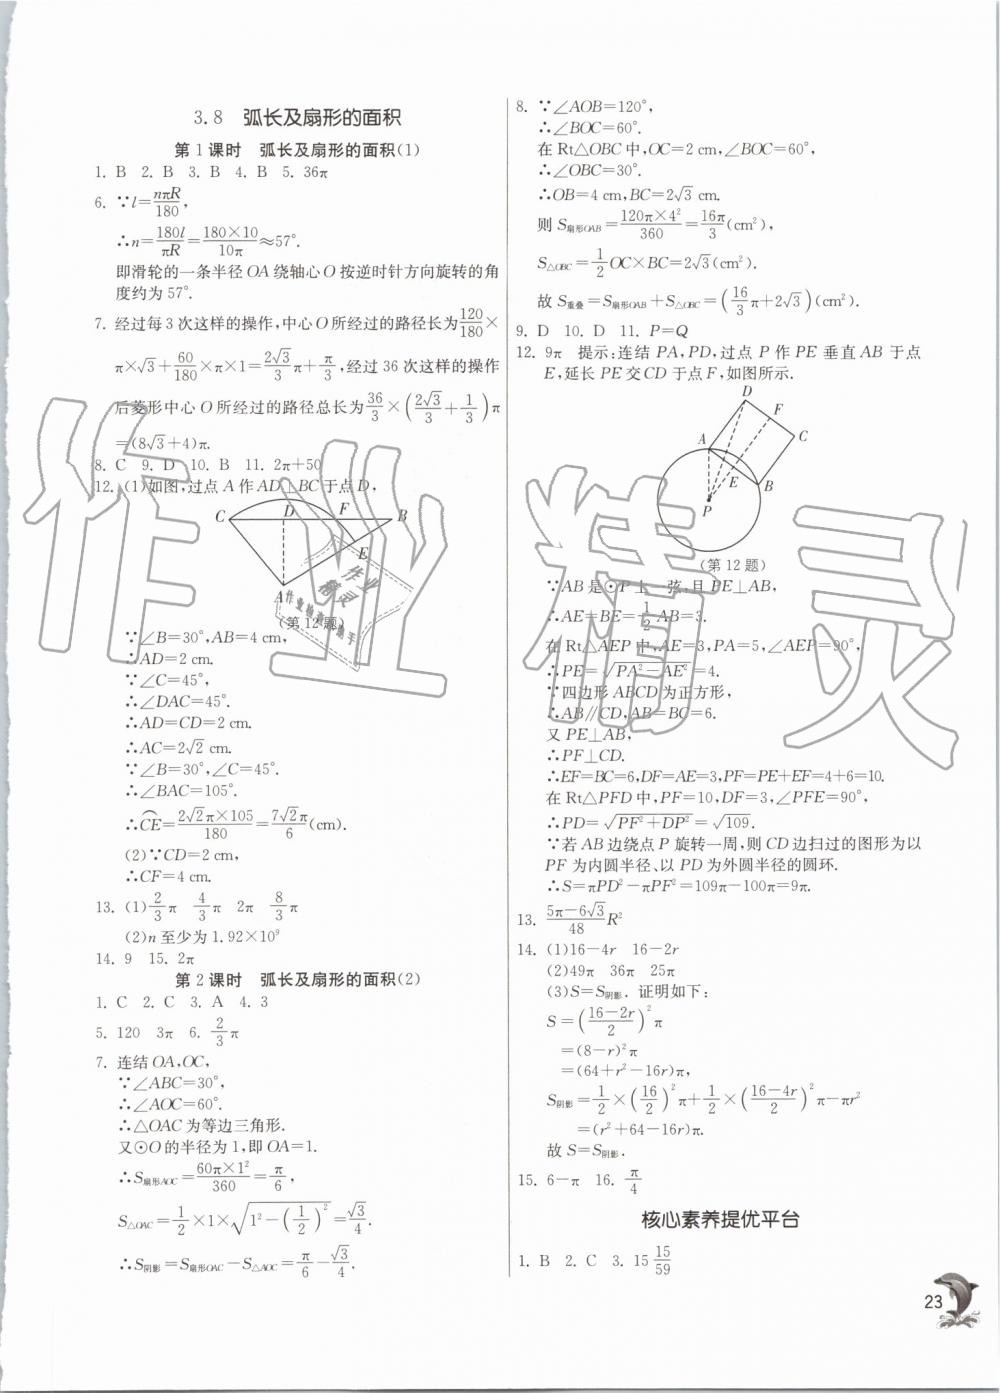 3.8 弧长及扇形的面积
第1课时 弧长及扇形的面积(1)
1. B 2. B 3. B 4. B 5. 36π
6. ∵l=nπR/180,
∴n=180l/πR=180×10/10π≈57°.
即滑轮的一条半径OA绕轴心O按逆时针方向旋转的角
度约为57°.
7. 经过每3次这样的操作,中心O所经过的路径长为120/180×
π×√3+60/180×π×1=2√3/3π+π/3,经过36次这样的操作
后菱形中心O所经过的路径总长为36/3×(2√3/3+1/3)π
=(8√3+4)π.
8. C 9. D 10. B 11. 2π+50
12. (1)如图,过点A作AD⊥BC于点D,
C D F B
E
A
(第12题)
∵∠B=30°,AB=4 cm,
∴AD=2 cm.
∵∠C=45°,
∴∠DAC=45°.
∴AD=CD=2 cm.
∴AC=2√2 cm.
∵∠B=30°,∠C=45°.
∴∠BAC=105°.
∴⌒CE=2√2π×105/180=7√2π/6(cm).
(2)∵CD=2 cm,
∴CF=4 cm.
13. (1)2/3π 4/3π 2π 8/3π
(2)n至少为1.92×10⁹
14. 9 15. 2π
第2课时 弧长及扇形的面积(2)
1. C 2. C 3. A 4. 3
5. 120 3π 6. 2/3π
7. 连结OA,OC,
∵∠ABC=30°,
∴∠AOC=60°.
∴△OAC为等边三角形.
又⊙O的半径为1,即OA=1.
∴S扇形AOC=60π×1²/360=π/6,
S△OAC=1/2×1×√(1²-(1/2)²)=√3/4.
∴S阴影=S扇形OAC-S△AOC=π/6-√3/4.
8. ∵∠AOB=120°,
∴∠BOC=60°.
在Rt△OBC中,OC=2 cm,∠BOC=60°,
∴∠OBC=30°.
∴OB=4 cm,BC=2√3 cm.
则S扇形OAB=120π×4²/360=16π/3(cm²),
S△OBC=1/2OC×BC=2√3(cm²).
故S重叠=S扇形OAB+S△OBC=(16/3π+2√3)(cm²).
9. D 10. D 11. P=Q
12. 9π 提示:连结PA,PD,过点P作PE垂直AB于点
E,延长PE交CD于点F,如图所示.
D
F
A C
E B
P
(第12题)
∵AB是⊙P上一弦,且PE⊥AB,
∴AE=BE=1/2AB=3.
在Rt△AEP中,AE=3,PA=5,∠AEP=90°,
∴PE=√(PA²-AE²)=4.
∵四边形ABCD为正方形,
∴AB∥CD,AB=BC=6.
又PE⊥AB,
∴PF⊥CD.
∴EF=BC=6,DF=AE=3,PF=PE+EF=4+6=10.
在Rt△PFD中,PF=10,DF=3,∠PFE=90°,
∴PD=√(PF²+DP²)=√109.
∵若AB边绕点P旋转一周,则CD边扫过的图形为以
PF为内圆半径、以PD为外圆半径的圆环.
∴S=πPD²-πPF²=109π-100π=9π.
13. (5π-6√3)/48 R²
14. (1)16-4r 16-2r
(2)49π 36π 25π
(3)S=S阴影. 证明如下:
S=((16-2r)/2)²π
=(8-r)²π
=(64+r²-16r)π,
S阴影=1/2×(16/2)²π+1/2×((16-4r)/2)²π-πr²
=(r²+64-16r)π.
故S=S阴影.
15. 6-π 16. π/4
核心素养提优平台
1. B 2. C 3. 15 15/59
23
作业精灵
作业精灵
作业检查小助手